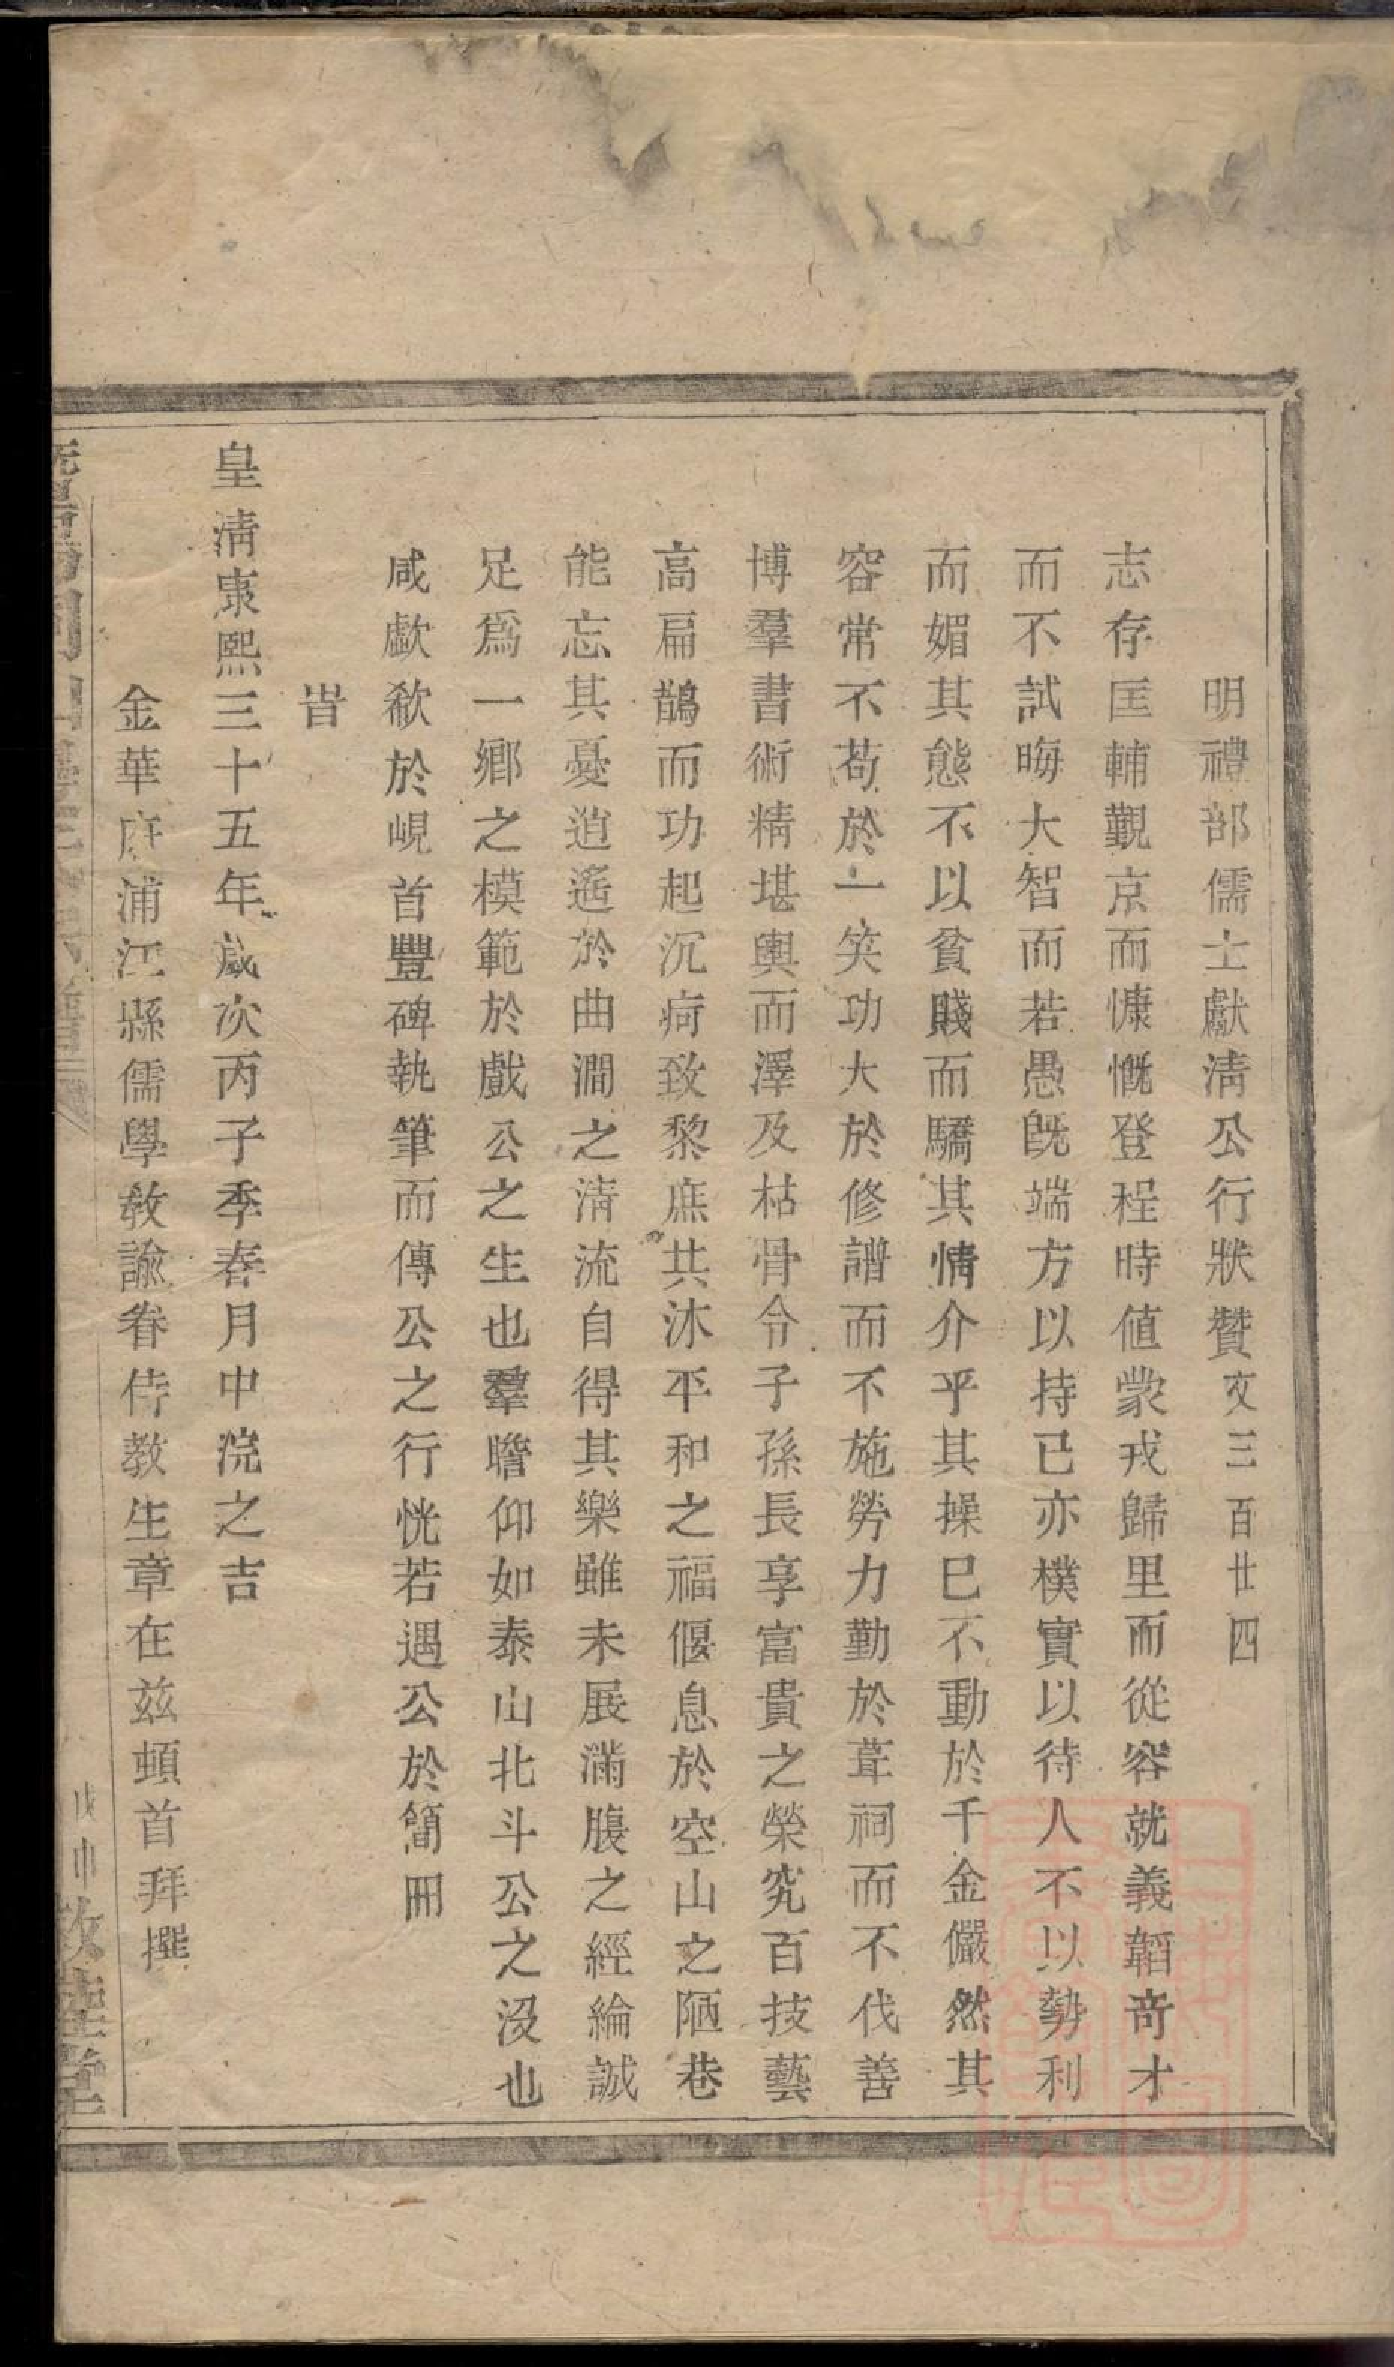 明禮部儒士獻淸公行狀贊文三百廿四
志存匡輔觀京而慷慨登程時値蒙戎歸里而從容就義韜奇才
而不試晦大智而若愚旣端方以持已亦樸實以待人不以勢利
而媚其態不以貧賤而驕其情介乎其操巳不動於千金儼然其
容常不苟於一笑功大於修譜而不施勞力勤於葺祠而不伐善
博羣書術精堪輿而澤及枯骨令子孫長享富貴之榮究百技藝
高扁鵲而功起沉疴致黎庶共沐平和之福偃息於空山之陋巷
能忘其憂逍遙於曲澗之淸流自得其樂雖未展滿腹之經綸誠
足爲一鄉之模範於戲公之生也羣瞻仰如泰山北斗公之沒也
咸歔欷於峴首豐碑執筆而傳公之行恍若遇公於簡冊
旹
皇淸康熙三十五年歲次丙子季春月中浣之吉
金華府浦江縣儒學教諭眷侍教生章在茲頓首拜撰